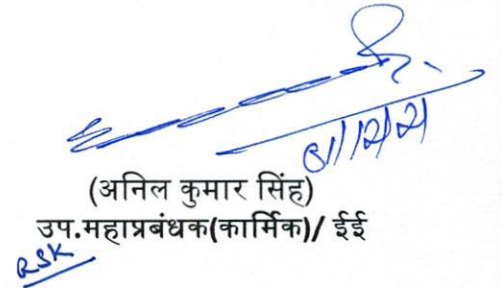 (अनिल कुमार सिंह)
उप.महाप्रबंधक(कार्मिक)/ ईई
RSK